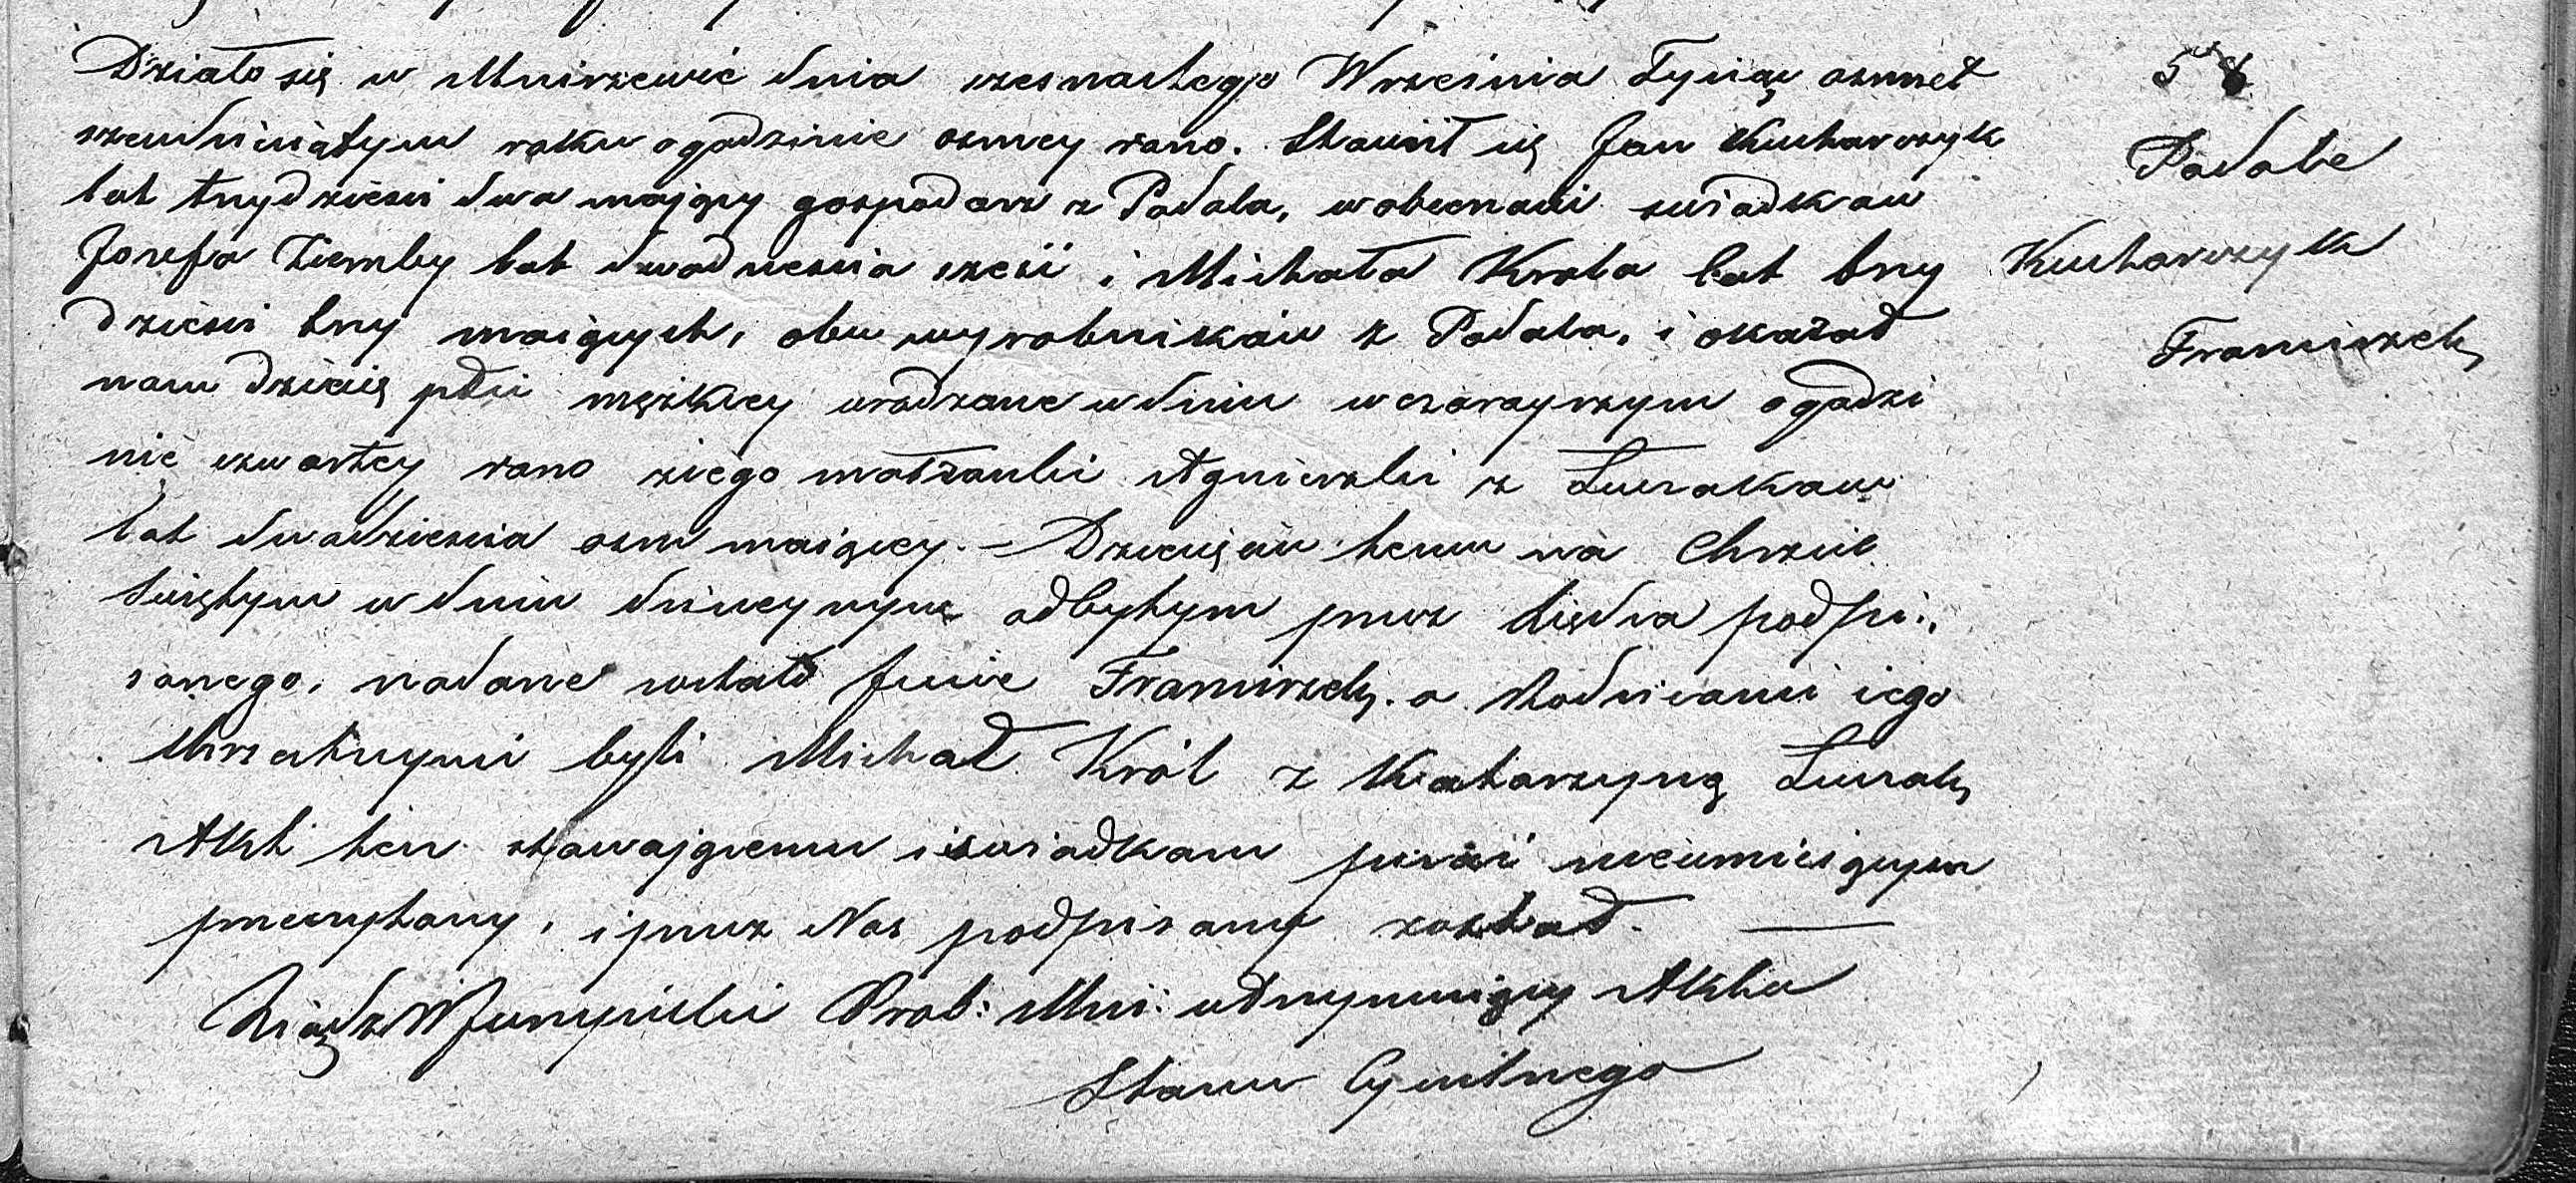 Działo się w Mnirzewie dnia szesnastego Września Tysiąc osmset
szesdziesiątym roku ogodzinie osmey rano. Stawił się Jan Kucharczyk
lat trzydzieści dwa mający gospodarz z Podola, wobecności swiadkow
Jozefa Ziemby lat dwadziescia sześć i Michała Krola lat trzy
dzieści trzy maiących, obu wyrobników z Podola, i okazał
nam dziecię płci męzkiey urodzone wdniu wczorayszym ogodzi
nie czwartey rano ziego małzonki Agnieszki z
lat dwadziescia osm maiącey. – Dziecięciu temu na Chrzcie
Swiętym wdniu dzisieyszym odbytym przez Xiędza podpi:
sanego, nadane zostało Imie Franciszek, a Rodzicami iego
Chrzestnymi byli Michał Król z Katarzyną
Akt ten stawającemu i swiadkom pisać nieumieiącym
przeczytany, i przez Nas podpisany został. —
Xiądz Prob: Mni: utrzymuiący Akta
Stanu Cywilnego
Podole
Kucharczyk
Franciszek